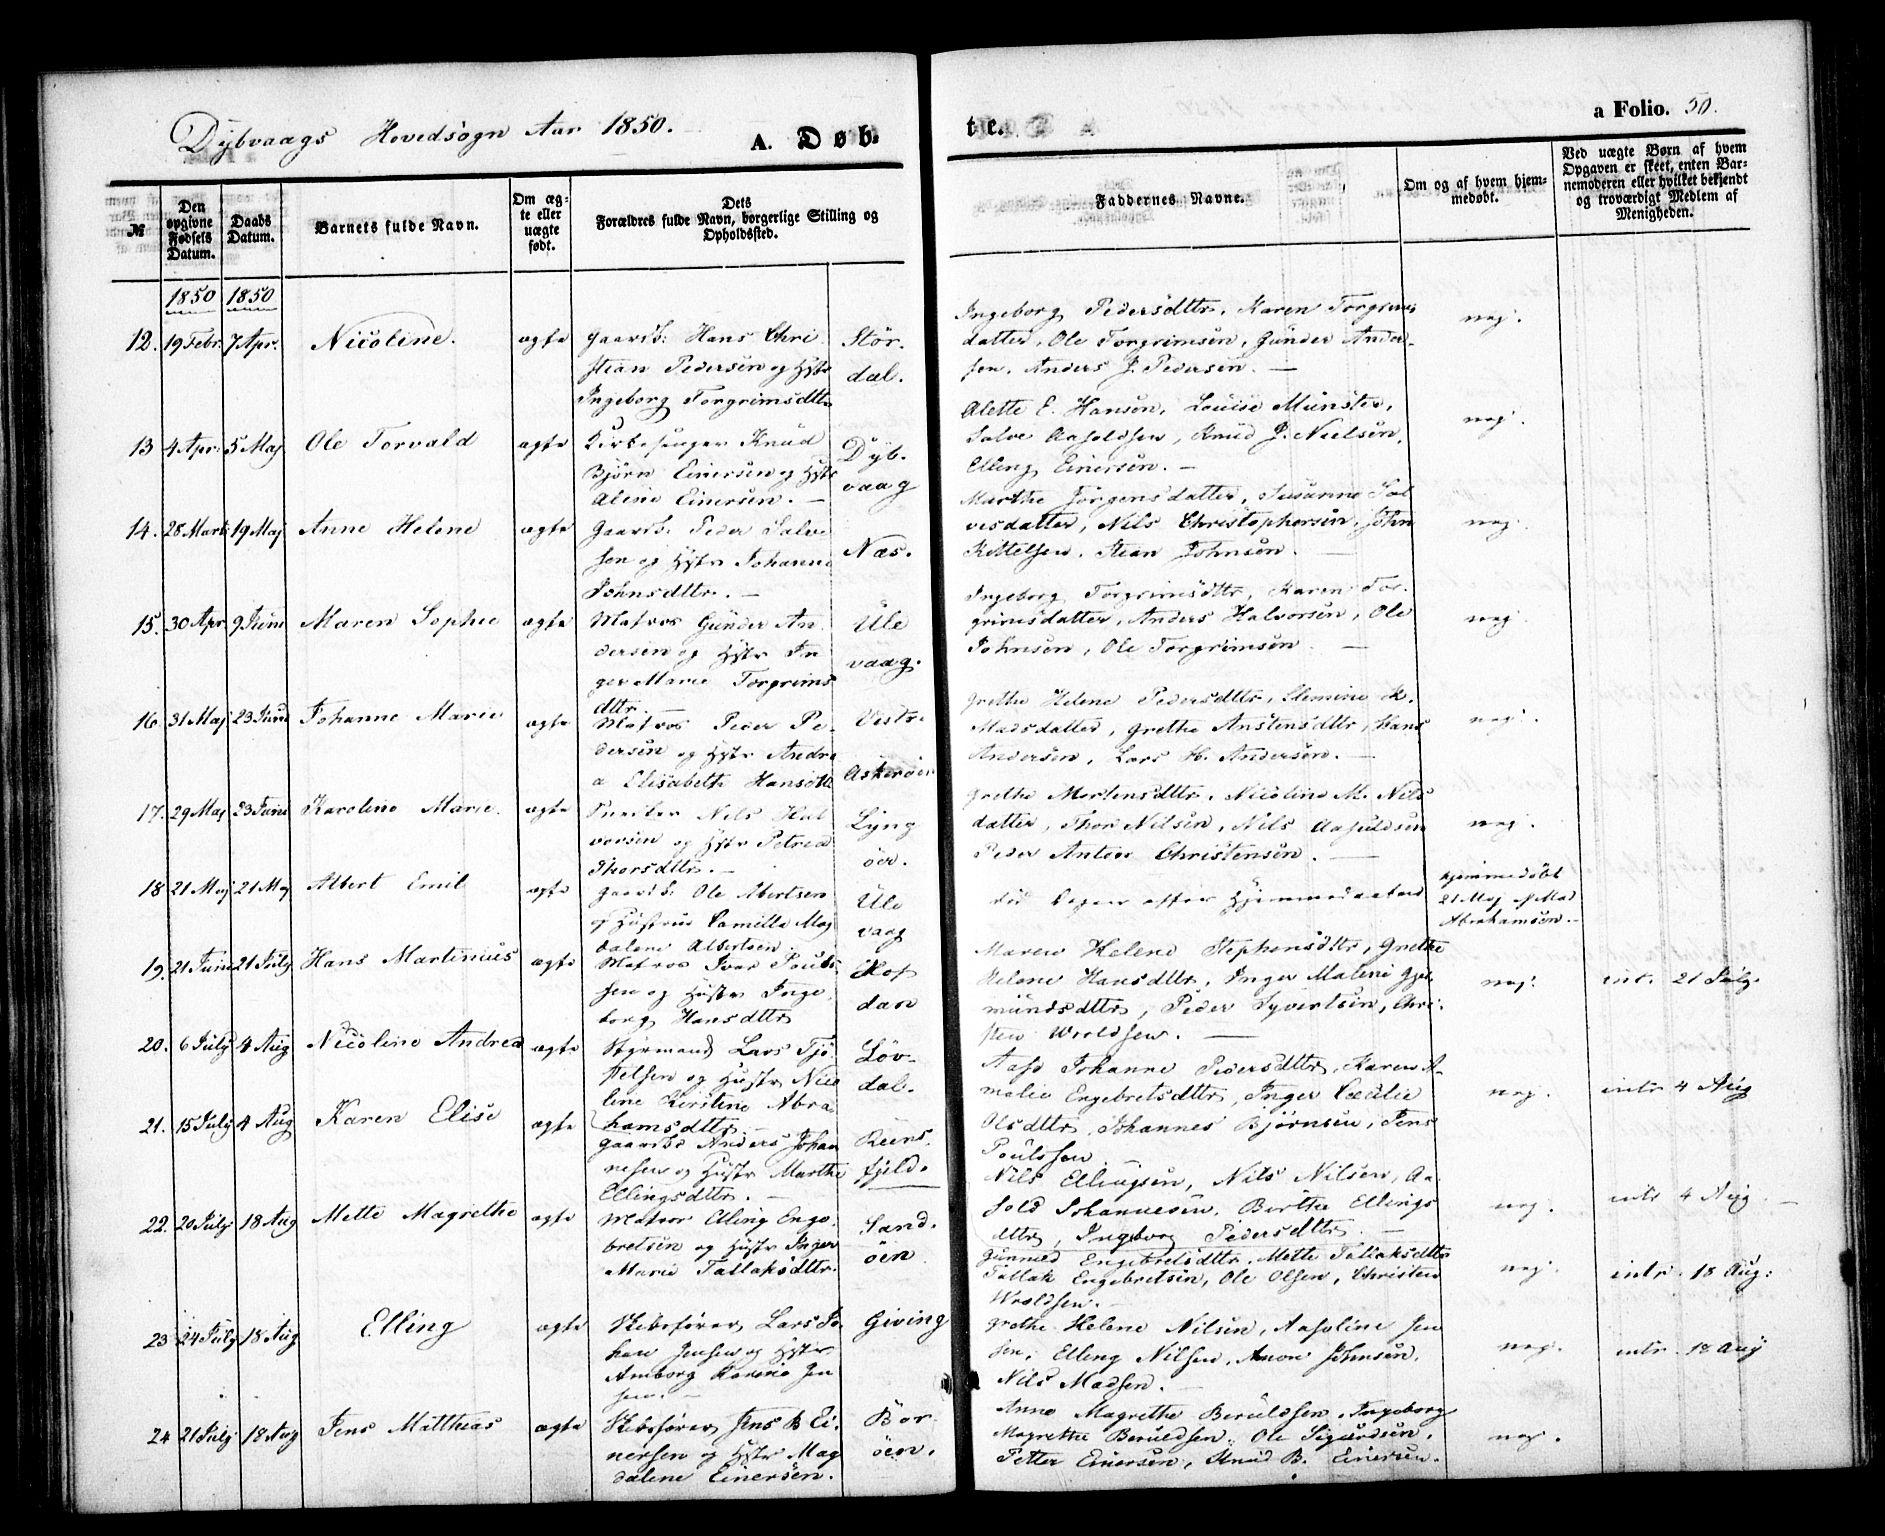 Dybvaags Hovedsogn Aar 1850.
A. Døb-
te.
a Folio. 50.
№
Den opgivne Fødsels Datum.
Daabs Datum.
Barnets fulde Navn.
Om ægte eller uægte født.
Dets Forældres fulde Navn, borgerlige Stilling og Opholdssted.
Faddernes Navne.
Om og af hvem hjemmedøbt.
Ved uægte Børn af hvem Opgaven er skeet, enten Barnemoderen eller hvilket bekjendt og troværdigt Medlem af Menigheden.
1850 1850
12. 19 Febr. 7 Apr. Nicoline. ægte
Gaardb: Hans Chri
stian Pedersen og Hstr
Ingeborg Torgrimsdtr
Stör.
dal.
Ingeborg Pedersdtr, Karen Torgrims
datter, Ole Torgrimsen, Gunder Ander-
sen, Anders J. Pedersen. —
nej.
13 4 Apr. 5 Maj Ole Torvald ægte
Kirkesanger Knud
Bjørn Einersen og Hstr
Alene Einersen. —
Dyb.
vaag
Alette E. Hansen, Louise Munster,
Salve Aasoldsen, Knud J. Nielsen,
Elling Einersen. —
nej.
14. 28 Marts 19 Maj Anne Helene ægte
Gaardb: Peder Salve
sen og Hstr Johanne
Johnsdttr. —
Næs.
Marthe Jörgensdatter, Susanne Sal
vesdatter, Nils Christophersen, John
Kittelsen, Stian Johnsen. —
nej.
15. 30 Apr 9 Juni Maren Sophie ægte
Matros Gunder An
dersen og Hstr In
ger Marie Torgrims
dttr. —
Ule
vaag.
Ingeborg Torgrimsdttr, Karen Tor-
grimsdatter, Anders Halvorsen, Ole
Johnsen, Ole Torgrimsen —
nej.
16. 31 Maj 23 Juni Johanne Marie ægte
Matros Peder Pe-
dersen og Hstr Andre
a Elisabeth Hansdtr
Vestr.
Askerøen
Grethe Helene Pedersdttr, K.
Madsdatter, Grethe Anstensdttr, Hans
Andersen, Lars H. Andersen. —
nej.
17. 29 Maj 23 Juni Karoline Marie. ægte
Nils Hal
vorsen og Hstr Petrea
Thorsdttr. —
Lyng
öer.
Grethe Mortensdttr, Nicoline M. Nils
datter, Thor Nilsen, Nils Aasuldsen
Peder Anton Christensen. —
nej.
18 21 Maj 21 Maj Albert Emil ægte
Gaardb: Ole Albertsen
og Hustrue Camilla Mag
dalene Albertsen.
Ule
vaag
död Dagen efter Hjemmedaaben
hjemmedöbt
21 Maj af Mad
Abrahamsen. —
19. 21 Juni 21 July Hans Martinius ægte
Matros Ivar Pouls
sen og Hustr Inge
borg Hansdttr
dan
Maren Helene Stephensdttr, Grethe
Helene Hansdttr, Inger Malene Gjer
mundsdttr, Peder Syvertsen, Chri-
sten Wroldsen. —
nej.
intr. 21 July.
20. 6 July 4 Aug Nicoline Andrea ægte
Styrmand Lars Tjö
stelsen og Hustr Nico
line Kirstine Abra
hamsdttr. —
Löv-
dal.
Aase Johanne Pedersdttr, Karen A-
malie Engebretsdttr, Inger Cæcilie
Olsdttr, Johannes Bjørnsen, Jens
Poulssen
nej.
intr 4 Aug
21. 15 July 4 Aug Karen Elise ægte
Gaardb Anders Johan
nesen og Hustr Marthe
Ellingsdttr. —
Reens.
fjeld.
Nils Ellingsen, Nils Nilsen, Aa-
sold Johannesen, Berthe Ellings
dttr, Ingeborg Pedersdttr. —
nej.
intr 4 Aug. —
22. 20 July 18 Aug Mette Magrethe ægte
Matros Elling Enge-
bretsen og Hustr Inger
Marie Tallaksdttr.
Sand.
öen
Gunned Engebretsdttr, Mette Tallaksdttr
Tallak Engebretsen, Ole Olsen, Christen
Wroldsen. —
nej.
intr. 18 Aug.
23 24 July 18 Aug Elling ægte
Skibsfører Lars Jo
han Jensen og Hstr
Amborg Karine Jen
sen. —
Giving
Grethe Helene Nilsen, Aasoline Jen
sen, Elling Nilsen, Amon Johnsen,
Nils Madsen. —
nej.
intr. 18 Aug
24 21 July 18 Aug Jens Matthias ægte
Skibsfører Jens B Ei-
nersen og Hstr Mag
dalene Einersen.
Bor-
öen.
Anne Magrethe Beruldsen, Ingeborg
Magrethe Beruldsen, Ole Sigurdsen,
Petter Einersen, Knud B. Einersen.
nej.